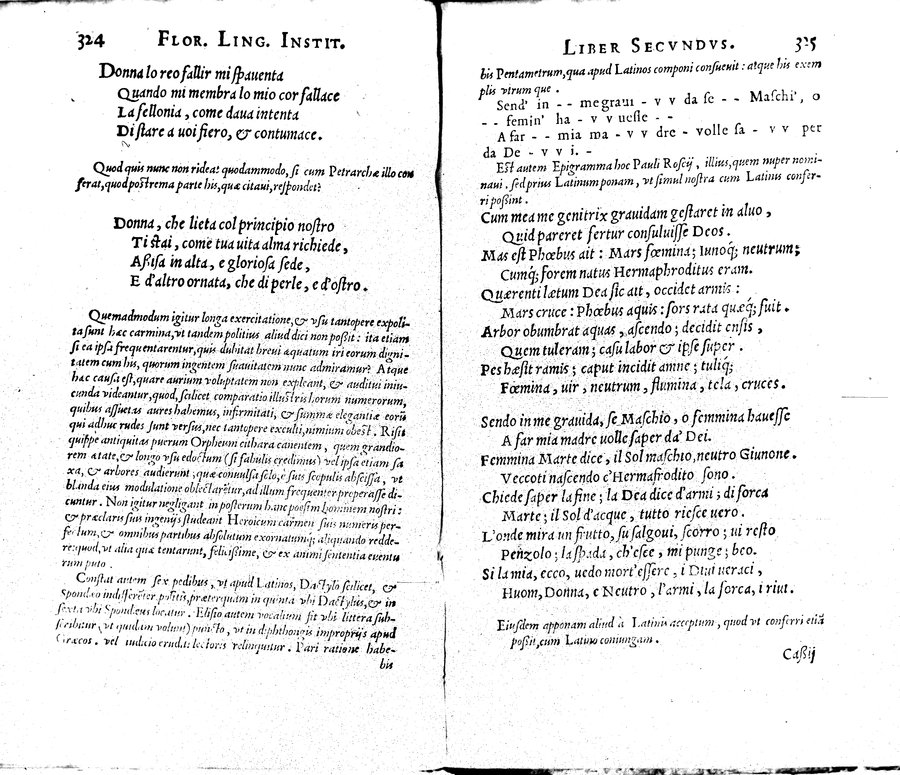 324 FLOR. LING. INSTIT.
Donna lo reo fallir mi ſpauenta
Quando mi membra lo mio cor fallace
La fellonia, come daua intenta
Di ſtare a uoi fiero, & contumace.
Quod quis nunc non rideat quodammodo, ſi cum Petrarchæ illo con
ferat, quod poſtrema parte his, quæ citaui, reſpondet?
Donna, che lieta col principio noſtro
Ti ſtai, come tua uita alma richiede,
Aſſiſa in alta, e glorioſa ſede,
E d'altro ornata, che di perle, e d'oſtro.
Quemadmodum igitur longa exercitatione, & vſu tantopere expoli-
ta ſunt hæc carmina, vt tandem politius aliud dici non poſſit: ita etiam
ſi ea ipſa frequentarentur, quis dubitat breui æquatum iri eorum digni-
tatem cum his, quorum ingentem ſuauitatem nunc admiramur? Atque
hæc cauſa eſt, quare aurium voluptatem non expleant, & auditui iniu-
cunda videantur, quod, ſcilicet, comparatio illuſtris horum numerorum,
quibus aſſuetas aures habemus, infirmitati, & ſummæ elegantiæ eorū
qui adhuc rudes ſunt verſus, nec tantopere exculti, nimium obeſt. Riſit
quippe antiquitas puerum Orpheum cithara canentem, quem grandio-
rem ætate, & longo vſu edoctum (ſi fabulis credimus) vel ipſa etiam ſa
xa, & arbores audierunt; quæ conuulſa ſolo, è ſuis ſcopulis abſciſſa, vt
blanda eius modulatione oblectarētur, ad illum frequenter properaſſe di-
cuntur. Non igitur negligant in poſterum hanc poeſim homines noſtri:
& præclaris ſuis ingenijs ſtudeant Heroicum carmen ſuis numeris per-
fectum, & omnibus partibus abſolutum exornatumq; aliquando redde-
re: quod, vt alia quæ tentarunt, feliciſſime, & ex animi ſententia euentu
rum puto.
Conſtat autem ſex pedibus, vt apud Latinos, Dactylo ſcilicet, &
Spondæo indifferēter poſitis, præterquam in quinta vbi Dactylus, & in
ſexta vbi Spondæus locatur. Eliſio autem vocalium fit vbi littera ſub-
ſcribitur, (vt quidam volunt) puncto, vt in diphthongis improprijs apud
Græcos. vel iudicio eruditi lectoris relinquitur. Pari ratione habe-
bis
LIBER SECVNDVS. 325
bis Pentametrum, qua apud Latinos componi conſueuit: atque his exem
plis vtrumque.
Send' in - - me graui - v v da ſe - - Maſchi', o
- - femin' ha - v v ueſſe - -
A far - - mia ma - v v dre - volle ſa - v v per
da De - v v i. -
Eſt autem Epigramma hoc Pauli Roſcij, illius, quem nuper nomi-
naui. ſed prius Latinum ponam, vt ſimul noſtra cum Latinis confer-
ri poſſint.
Cum mea me genitrix grauidam geſtaret in aluo,
Quid pareret fertur conſuluiſſe Deos.
Mas eſt Phœbus ait: Mars fœmina; Iunoq; neutrum;
Cumq; forem natus Hermaphroditus eram.
Quærenti lætum Dea ſic ait, occidet armis:
Mars cruce: Phœbus aquis: ſors rata quæq; fuit.
Arbor obumbrat aquas, aſcendo; decidit enſis,
Quem tuleram; caſu labor & ipſe ſuper.
Pes hæſit ramis; caput incidit amne; tuliq;
Fœmina, uir, neutrum, flumina, tela, cruces.
Sendo in me grauida, ſe Maſchio, o femmina haueſſe
A far mia madre uolle ſaper da' Dei.
Femmina Marte dice, il Sol maſchio, neutro Giunone.
Veccoti naſcendo c'Hermafrodito ſono.
Chiede ſaper la fine; la Dea dice d'armi; di forca
Marte; il Sol d'acque, tutto rieſce uero.
L'onde mira un frutto, ſu ſalgoui, ſcorro; ui reſto
Penzolo; la ſpada, ch'eſce, mi punge; beo.
Si la mia, ecco, uedo mort'eſſere, i Diui ueraci,
Huom, Donna, e Neutro, l'armi, la forca, i riui.
Eiuſdem apponam aliud à Latinis acceptum, quod vt conferri etiā
poſſit, cum Latino coniungam.
Caſſij